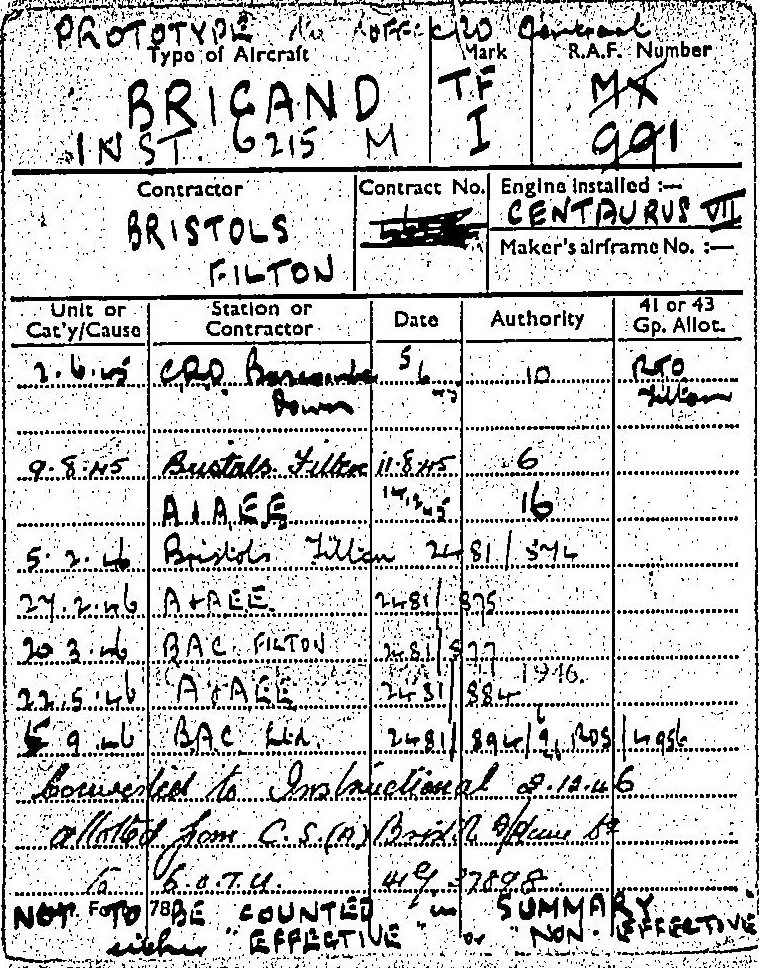 PROTOTYPE OFF: CRD Contract
Type of Aircraft Mark R.A.F. Number
BRIGAND TF MX
INST. 6215 M I 991
Contractor Contract No. Engine Installed :—
BRISTOLS CENTAURUS VII
FILTON Maker's airframe No. :—
Unit or Station or Date Authority 41 or 43
Cat'y/Cause Contractor Gp. Allot.
2.6.45 CRD Boscombe 5/6 10 RTO
Down 45 Filton
9.8.45 Bristols Filton 11.8.45 6
A & AEE 16
5.2.46 Bristols Filton 2481/874
27.2.46 A & AEE 2481/875
20 3.46 BAC FILTON 2481/877
1946.
22.5.46 A & AEE 2481/884
5 9 46 BAC Ltd. 2481/894/ ROS
Converted to Instructional 8.12.46
allotted from C.S.(A) Bristol
to 6.O.T.U. 41G 37898
NOT TO BE COUNTED in SUMMARY
Form 78
either "EFFECTIVE" or "NON. EFFECTIVE"